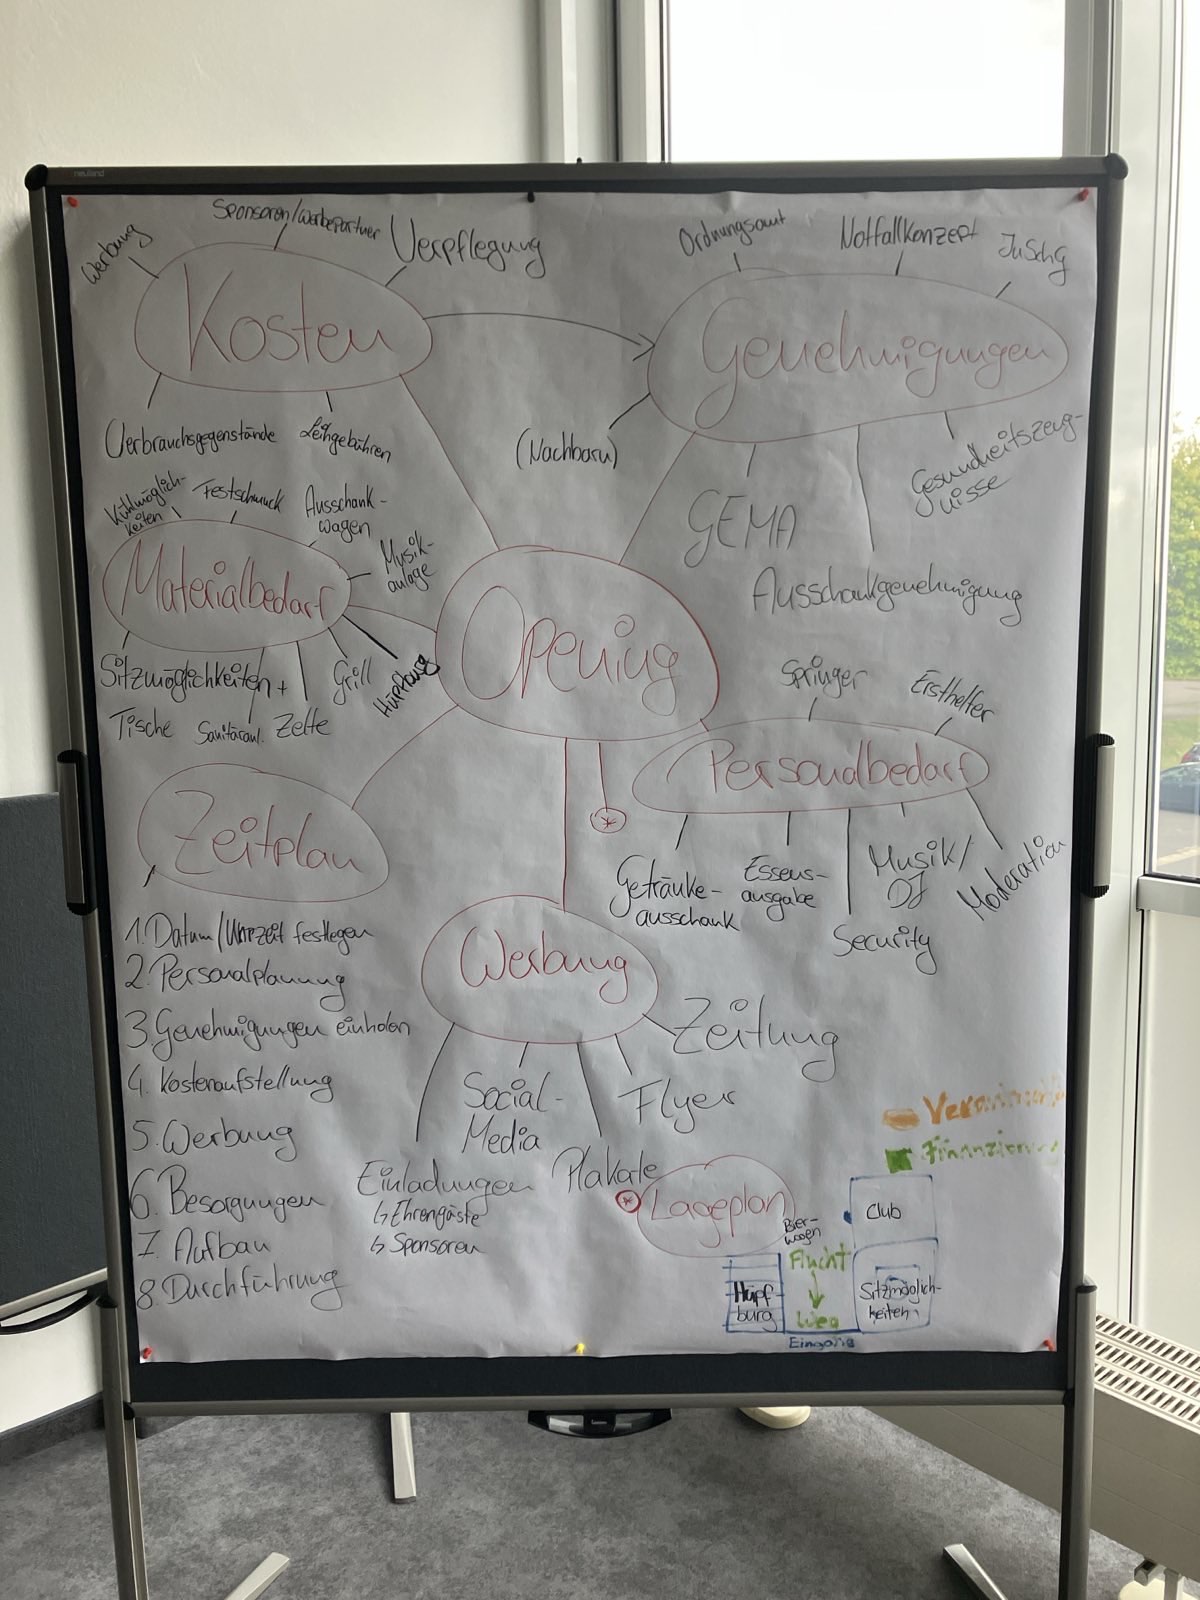 neuland
Werbung
Sponsoren/Werbepartner
Verpflegung
Kosten
Verbrauchsgegenstände
Leihgebühren
Ordnungsamt
Notfallkonzept
JuSchG
Genehmigungen
(Nachbarn)
GEMA
Ausschankgenehmigung
Gesundheitszeug-
nisse
Kühlmöglich-
keiten
Festschmuck
Ausschank-
wagen
Musik-
anlage
Materialbedarf
Sitzmöglichkeiten +
Tische
Sanitäranl.
Zelte
Grill
Hüpfburg
Opening
Springer
Ersthelfer
Personalbedarf
Getränke-
ausschank
Essens-
ausgabe
Security
Musik/
DJ
Moderation
Zeitplan
1. Datum/Uhrzeit festlegen
2. Personalplanung
3. Genehmigungen einholen
4. Kostenaufstellung
5. Werbung
6. Besorgungen
7. Aufbau
8. Durchführung
*
Werbung
Einladungen
↳ Ehrengäste
↳ Sponsoren
Social-
Media
Plakate
Flyer
Zeitung
Finanzierung
* Lageplan
Bier-
wagen
Club
Flucht
↓
Weg
Hüpf-
burg
Sitzmöglich-
keiten
Eingang